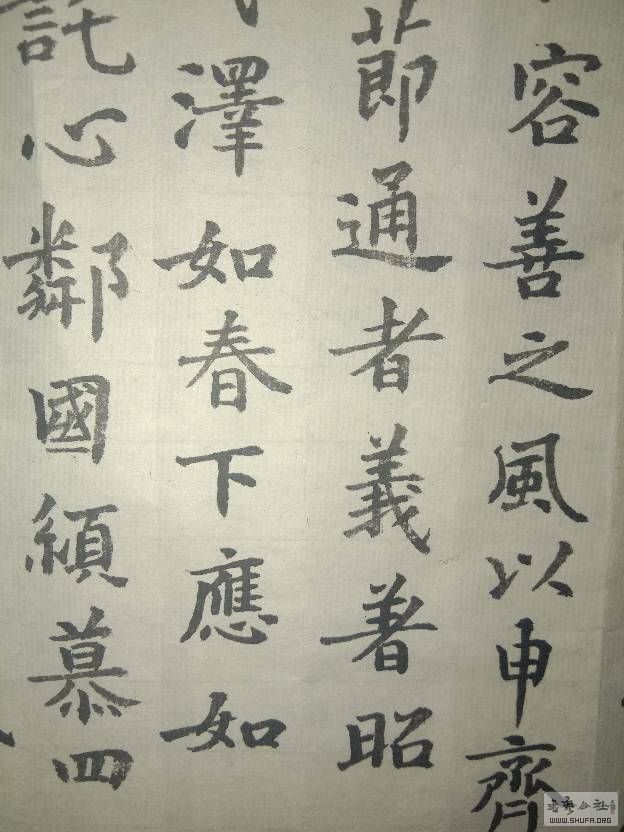 容善之風以申齊
節通者義著昭
澤如春下應如
託心鄰國傾慕四
书艺公社
WWW.SHUFA.ORG